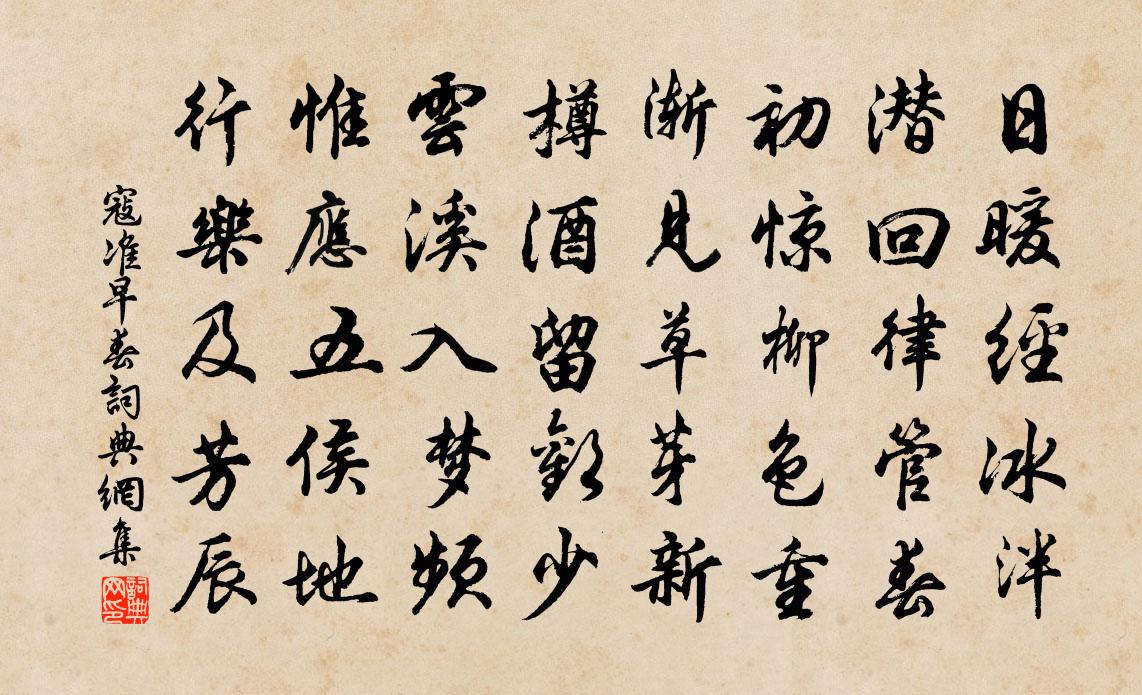 日暖經冰泮
潜回律管春
初惊柳色重
渐見草芽新
樽酒留歡少
雲溪入梦頻
惟應五侯地
行樂及芳辰
寇准早春詞典網集
詞典网印